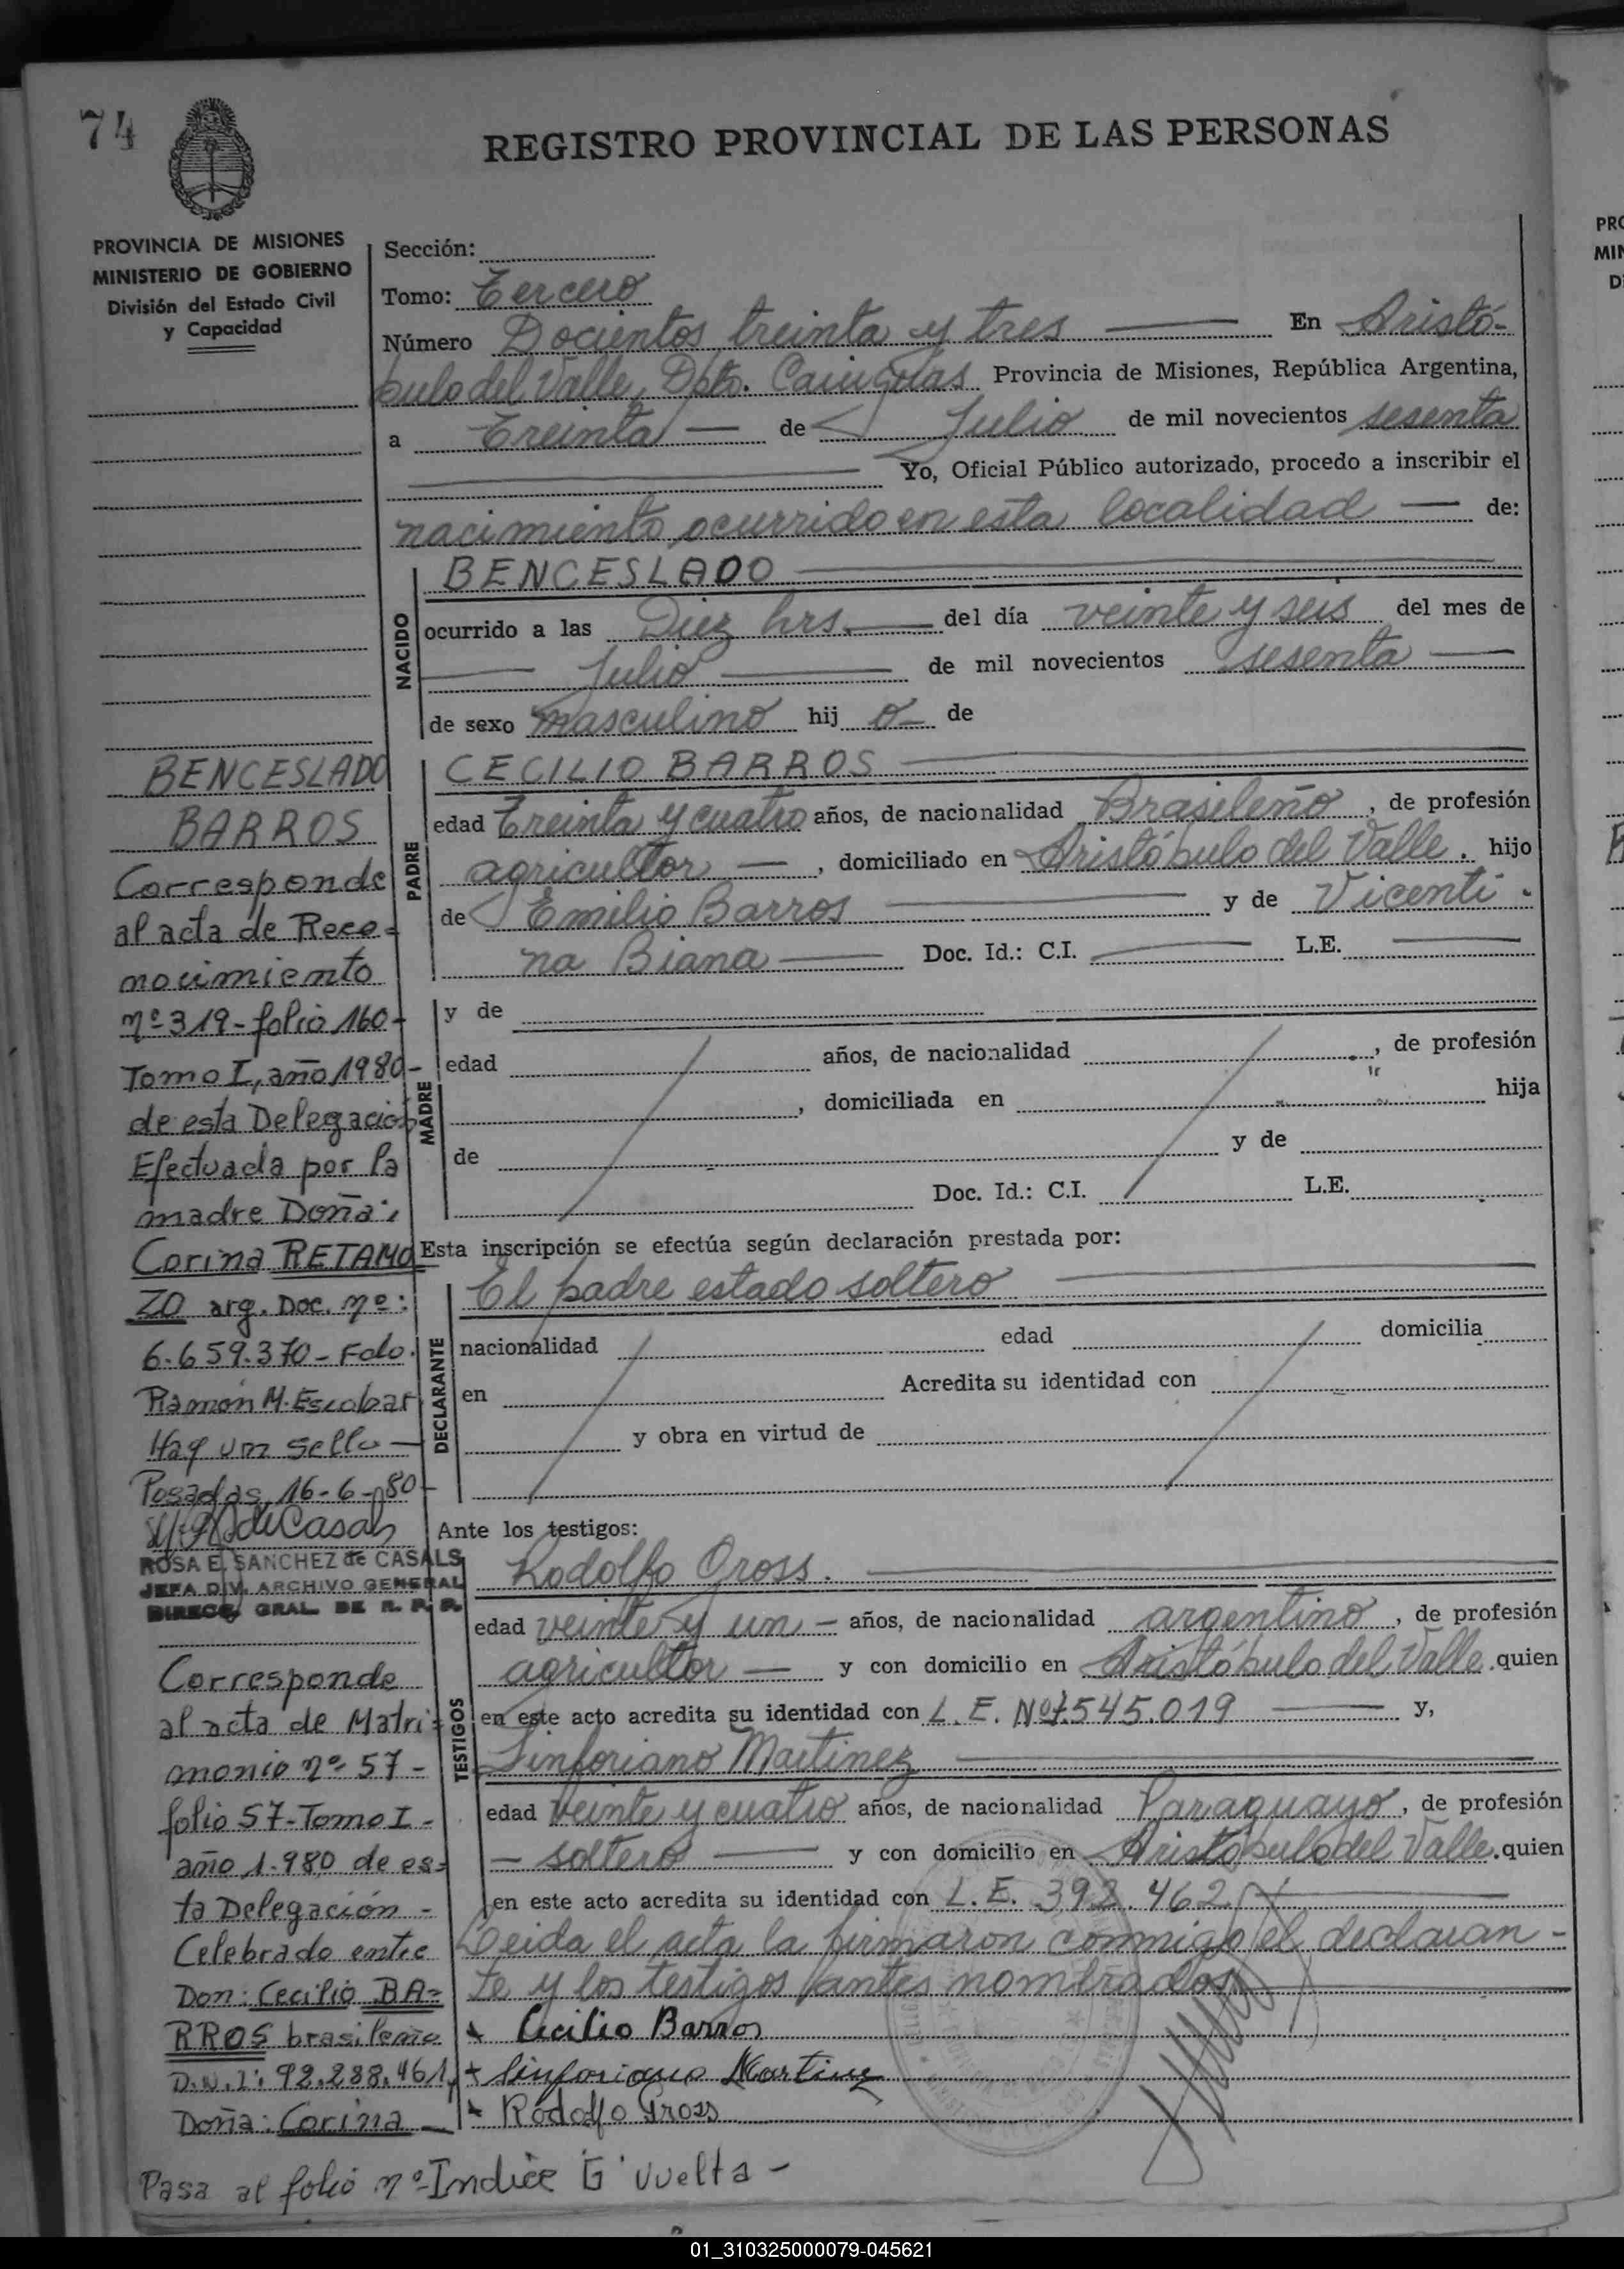 74
REGISTRO PROVINCIAL DE LAS PERSONAS
PROVINCIA DE MISIONES
MINISTERIO DE GOBIERNO
División del Estado Civil
y Capacidad
Sección:
Tomo: Tercero
Número Docientos treinta y tres En Aristó-
bulo del Valle, Dpto. Cainguás Provincia de Misiones, República Argentina,
a Treinta de Julio de mil novecientos sesenta
Yo, Oficial Público autorizado, procedo a inscribir el
nacimiento ocurrido en esta localidad de:
NACIDO
BENCESLADO
ocurrido a las Diez hrs. del día veinte y seis del mes de
Julio de mil novecientos sesenta
de sexo masculino hij o de
PADRE
CECILIO BARROS
edad Treinta y cuatro años, de nacionalidad Brasileño, de profesión
agricultor, domiciliado en Aristóbulo del Valle. hijo
de Emilio Barros y de Vicenti-
na Biana Doc. Id.: C.I. L.E.
MADRE
y de
edad años, de nacionalidad , de profesión
, domiciliada en hija
de y de
Doc. Id.: C.I. L.E.
Esta inscripción se efectúa según declaración prestada por:
DECLARANTE
El padre estado soltero
nacionalidad edad domicilia
en Acredita su identidad con
y obra en virtud de
Ante los testigos:
TESTIGOS
Rodolfo Gross.
edad veinte y un años, de nacionalidad argentino, de profesión
agricultor y con domicilio en Aristóbulo del Valle. quien
en este acto acredita su identidad con L.E. Nº 7.545.019 y,
Sinforiano Martinez
edad Veinte y cuatro años, de nacionalidad Paraguayo, de profesión
soltero y con domicilio en Aristóbulo del Valle. quien
en este acto acredita su identidad con L.E. 392.462
Leida el acta la firmaron conmigo el declaran-
te y los testigos antes nombrados
Cecilio Barros
Sinforiano Martinez
Rodolfo Gross
BENCESLADO
BARROS
Corresponde
al acta de Reco-
nocimiento
nº 319-folio 160-
Tomo I, año 1980-
de esta Delegación
Efectuada por la
madre Doña:
Corina RETAMO
ZO arg. Doc. nº:
6.659.370-Fdo.
Ramón M. Escobar
Hay un sello
Posadas, 16-6-80-
ROSA E. SANCHEZ de CASALS
JEFA DIV. ARCHIVO GENERAL
DIRECC. GRAL. DE R. P. P.
Corresponde
al acta de Matri-
monio nº 57-
folio 57-Tomo I-
año 1.980 de es-
ta Delegación-
Celebrado entre
Don: Cecilio BA-
RROS brasileño
D.N.I: 92.288.461 y
Doña: Corina
Pasa al folio nº Indice G vuelta-
01_310325000079-045621